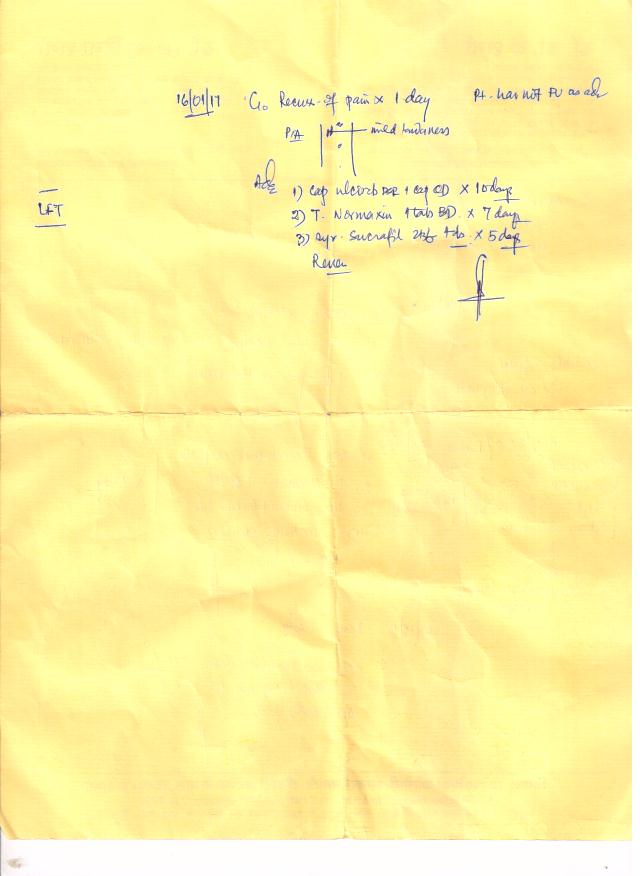 16/01/17 C/o Recurr. of pain x 1 day Pt. has not FU as adv
P/A mild tenderness
Adv
1) Cap 1 cap OD x 10 days
LFT
2) T. Normaxin 1 tab BD x 7 days
3) syr. Sucrafil tds x 5 days
Review